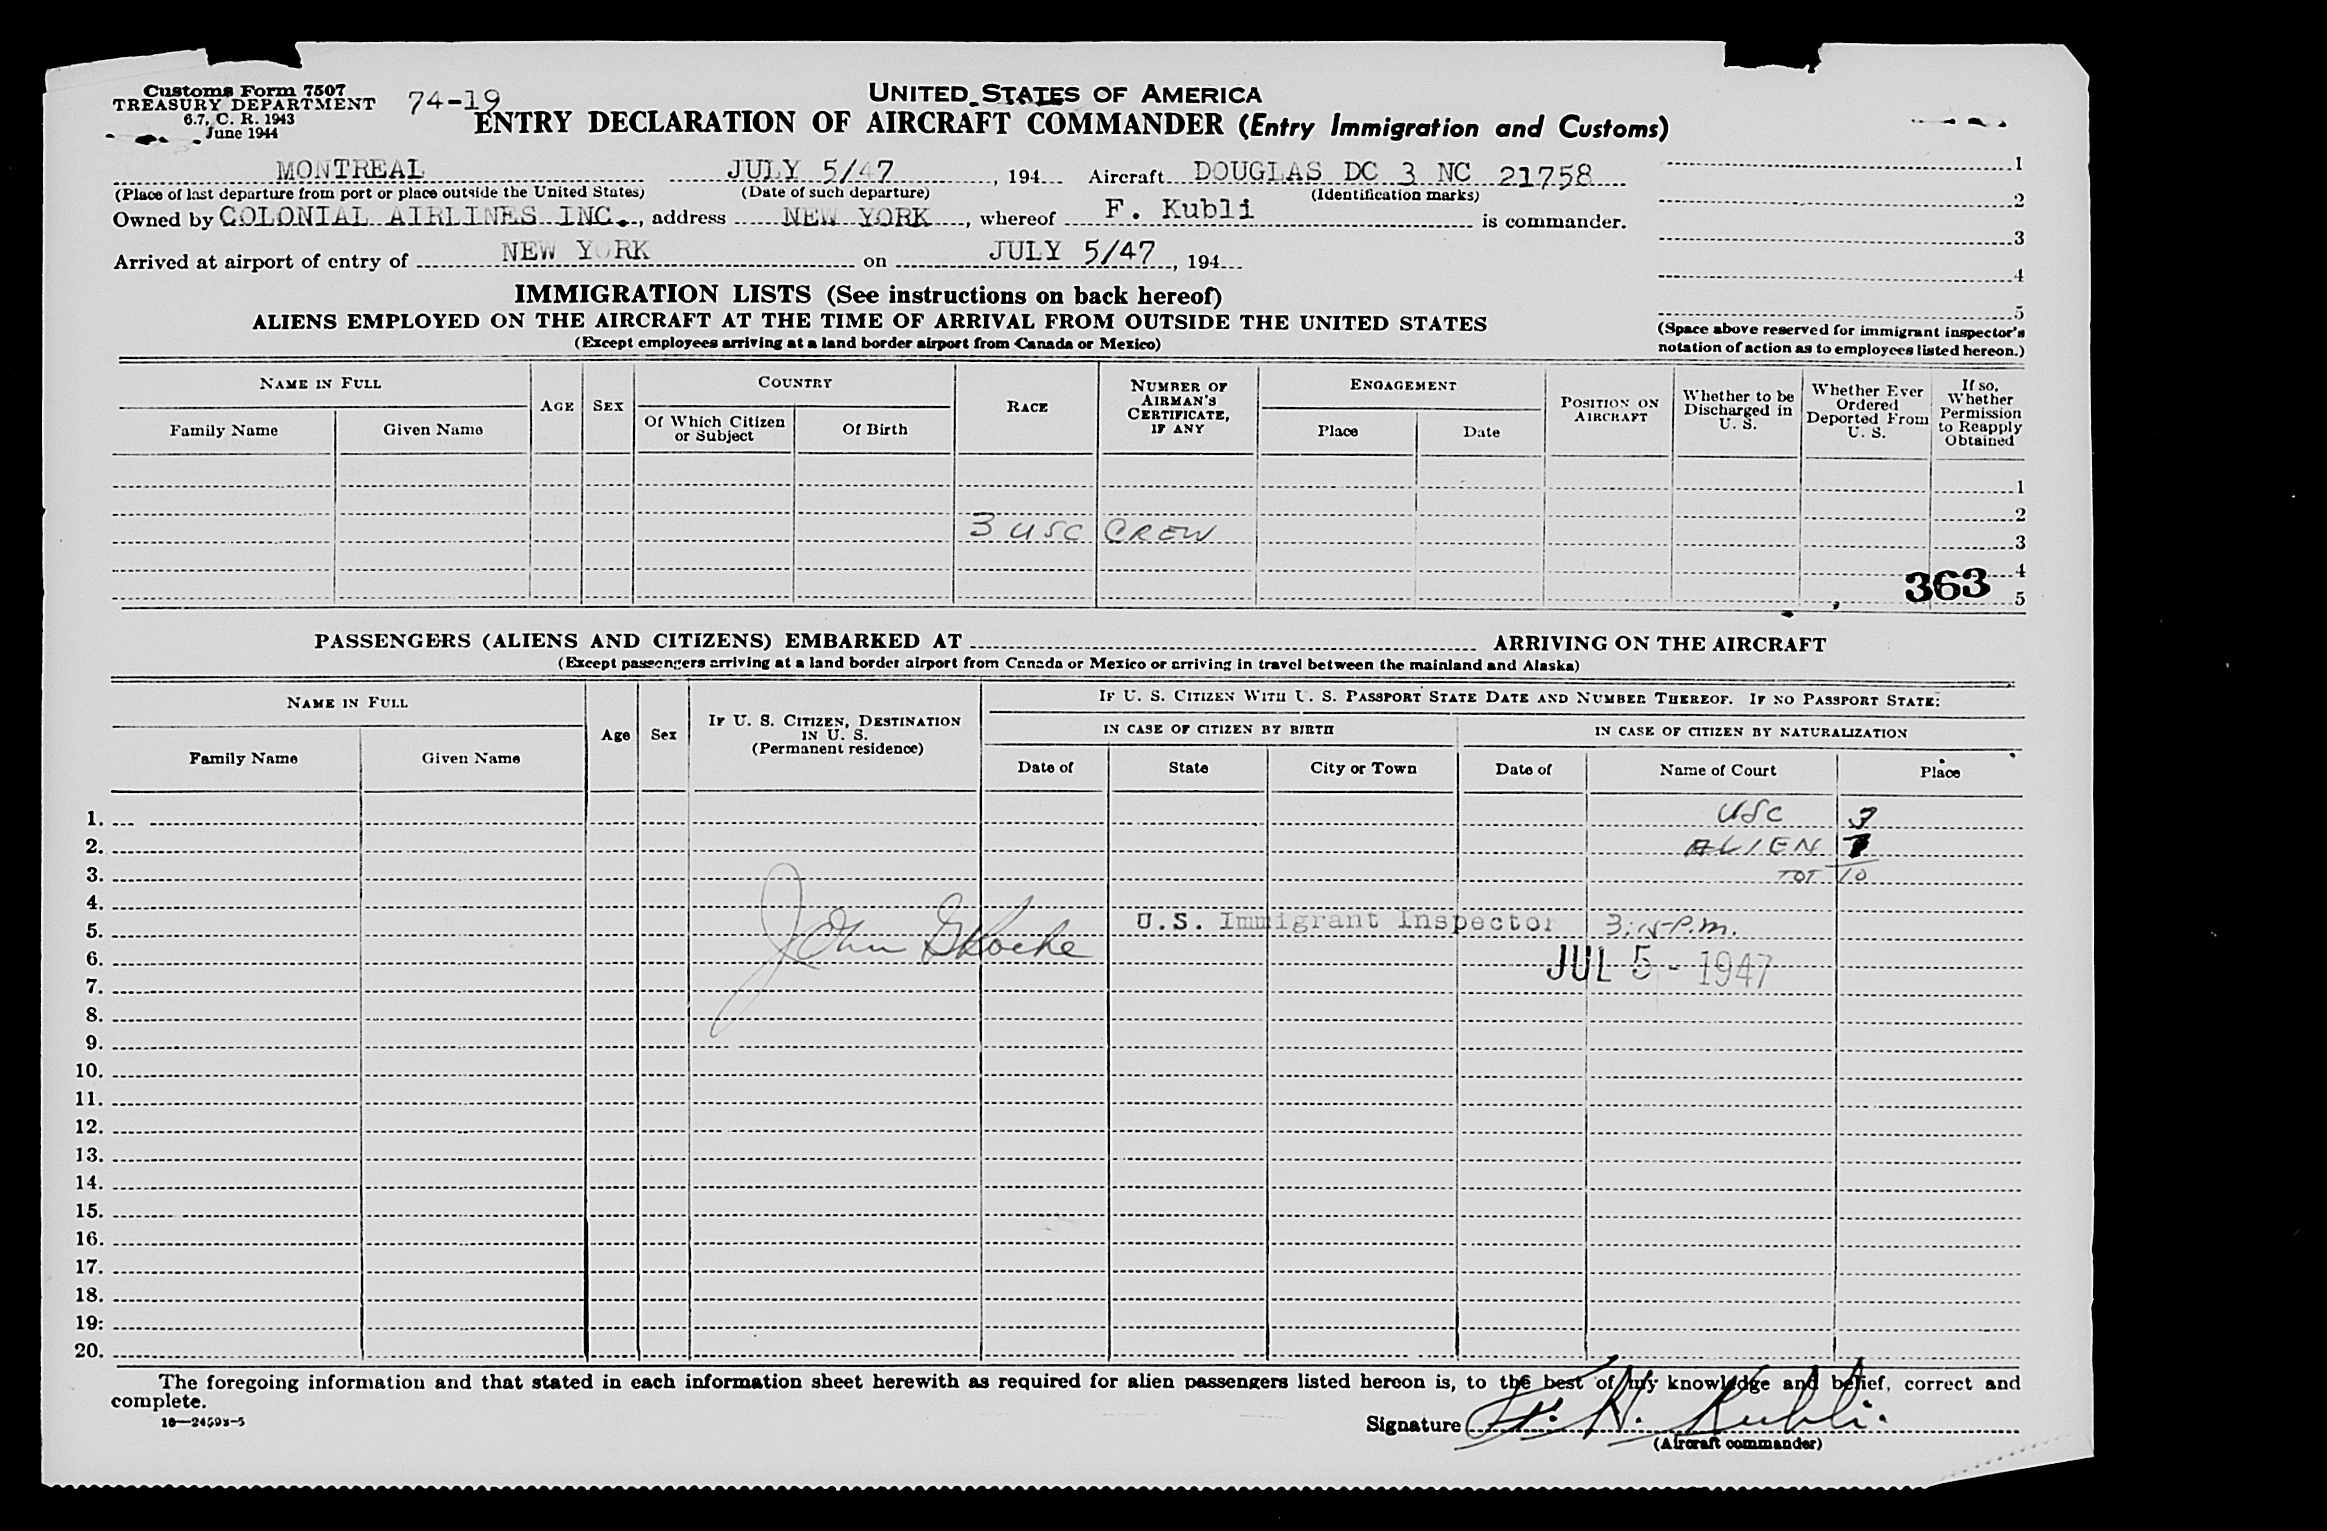 Customs Form 7507
TREASURY DEPARTMENT
6.7, C. R. 1943
June 1944
74-19
UNITED STATES OF AMERICA
ENTRY DECLARATION OF AIRCRAFT COMMANDER (Entry Immigration and Customs)
MONTREAL JULY 5/47, 194 Aircraft DOUGLAS DC 3 NC 21758
(Place of last departure from port or place outside the United States) (Date of such departure) (Identification marks)
Owned by COLONIAL AIRLINES INC., address NEW YORK, whereof F. Kubli is commander.
Arrived at airport of entry of NEW YORK on JULY 5/47, 194
1
2
3
4
5
(Space above reserved for immigrant inspector's
notation of action as to employees listed hereon.)
IMMIGRATION LISTS (See instructions on back hereof)
ALIENS EMPLOYED ON THE AIRCRAFT AT THE TIME OF ARRIVAL FROM OUTSIDE THE UNITED STATES
(Except employees arriving at a land border airport from Canada or Mexico)
NAME IN FULL
Family Name
Given Name
AGE
SEX
COUNTRY
Of Which Citizen
or Subject
Of Birth
RACE
NUMBER OF
AIRMAN'S
CERTIFICATE,
IF ANY
ENGAGEMENT
Place
Date
POSITION ON
AIRCRAFT
Whether to be
Discharged in
U. S.
Whether Ever
Ordered
Deported From
U. S.
If so,
Whether
Permission
to Reapply
Obtained
1
2
3 USC CREW
3
4
363
5
PASSENGERS (ALIENS AND CITIZENS) EMBARKED AT ARRIVING ON THE AIRCRAFT
(Except passengers arriving at a land border airport from Canada or Mexico or arriving in travel between the mainland and Alaska)
NAME IN FULL
Family Name
Given Name
Age
Sex
IF U. S. CITIZEN, DESTINATION
IN U. S.
(Permanent residence)
IF U. S. CITIZEN WITH U. S. PASSPORT STATE DATE AND NUMBER THEREOF. IF NO PASSPORT STATE:
IN CASE OF CITIZEN BY BIRTH
IN CASE OF CITIZEN BY NATURALIZATION
Date of
State
City or Town
Date of
Name of Court
Place
1. USC 3
2. ALIEN 7
3. TOT 10
4.
5. John G Roche U.S. Immigrant Inspector 3:15 P.M.
6. JUL 5 - 1947
7.
8.
9.
10.
11.
12.
13.
14.
15.
16.
17.
18.
19:
20.
The foregoing information and that stated in each information sheet herewith as required for alien passengers listed hereon is, to the best of my knowledge and belief, correct and
complete.
Signature F. H. Kubli.
(Aircraft commander)